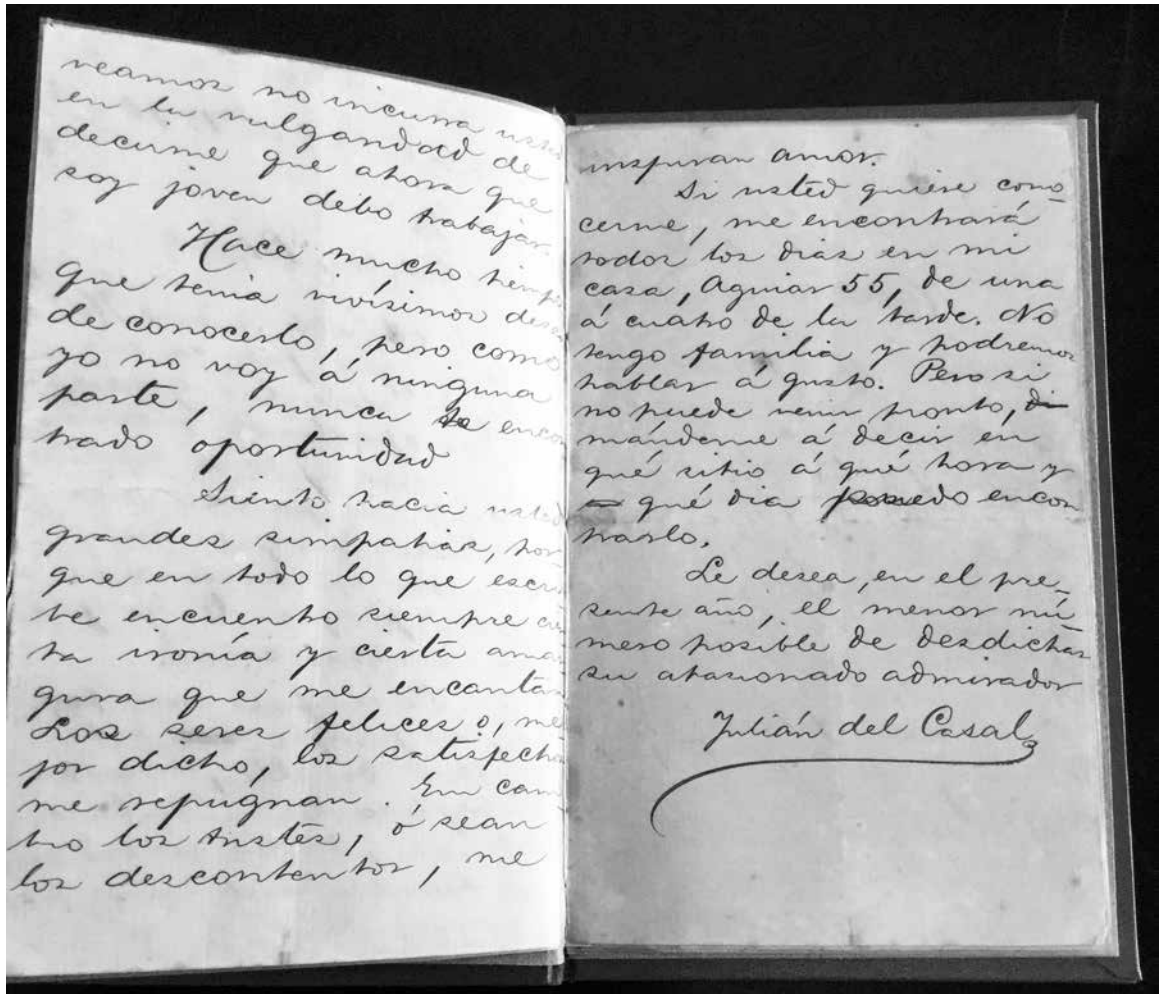 veamos no incurra usted
en la vulgaridad de
decirme que ahora que
soy joven debo trabajar.
Hace mucho tiempo
que tenía vivísimos dese
de conocerlo, pero como
yo no voy á ninguna
parte, nunca he encon
trado oportunidad
Siento hacia usted
grandes simpatías, por
que en todo lo que escri
be encuentro siempre cier
ta ironía y cierta ama
gura que me encantan
Los seres felices ó, me
jor dicho, los satisfechos
me repugnan. En cam
bio los tristes, ó sean
los descontentos, me
inspiran amor.
Si usted quiere cono_
cerme, me encontrará
todos los dias en mi
casa, Aguiar 55, de una
á cuatro de la tarde. No
tengo familia y podremos
hablar á gusto. Pero si
no puede venir pronto, di
mándeme á decir en
qué sitio á qué hora y
qué dia puedo encon
trarlo.
Le desea, en el pre_
sente año, el menor nú
mero posible de desdichas
su apasionado admirador
Julián del Casal